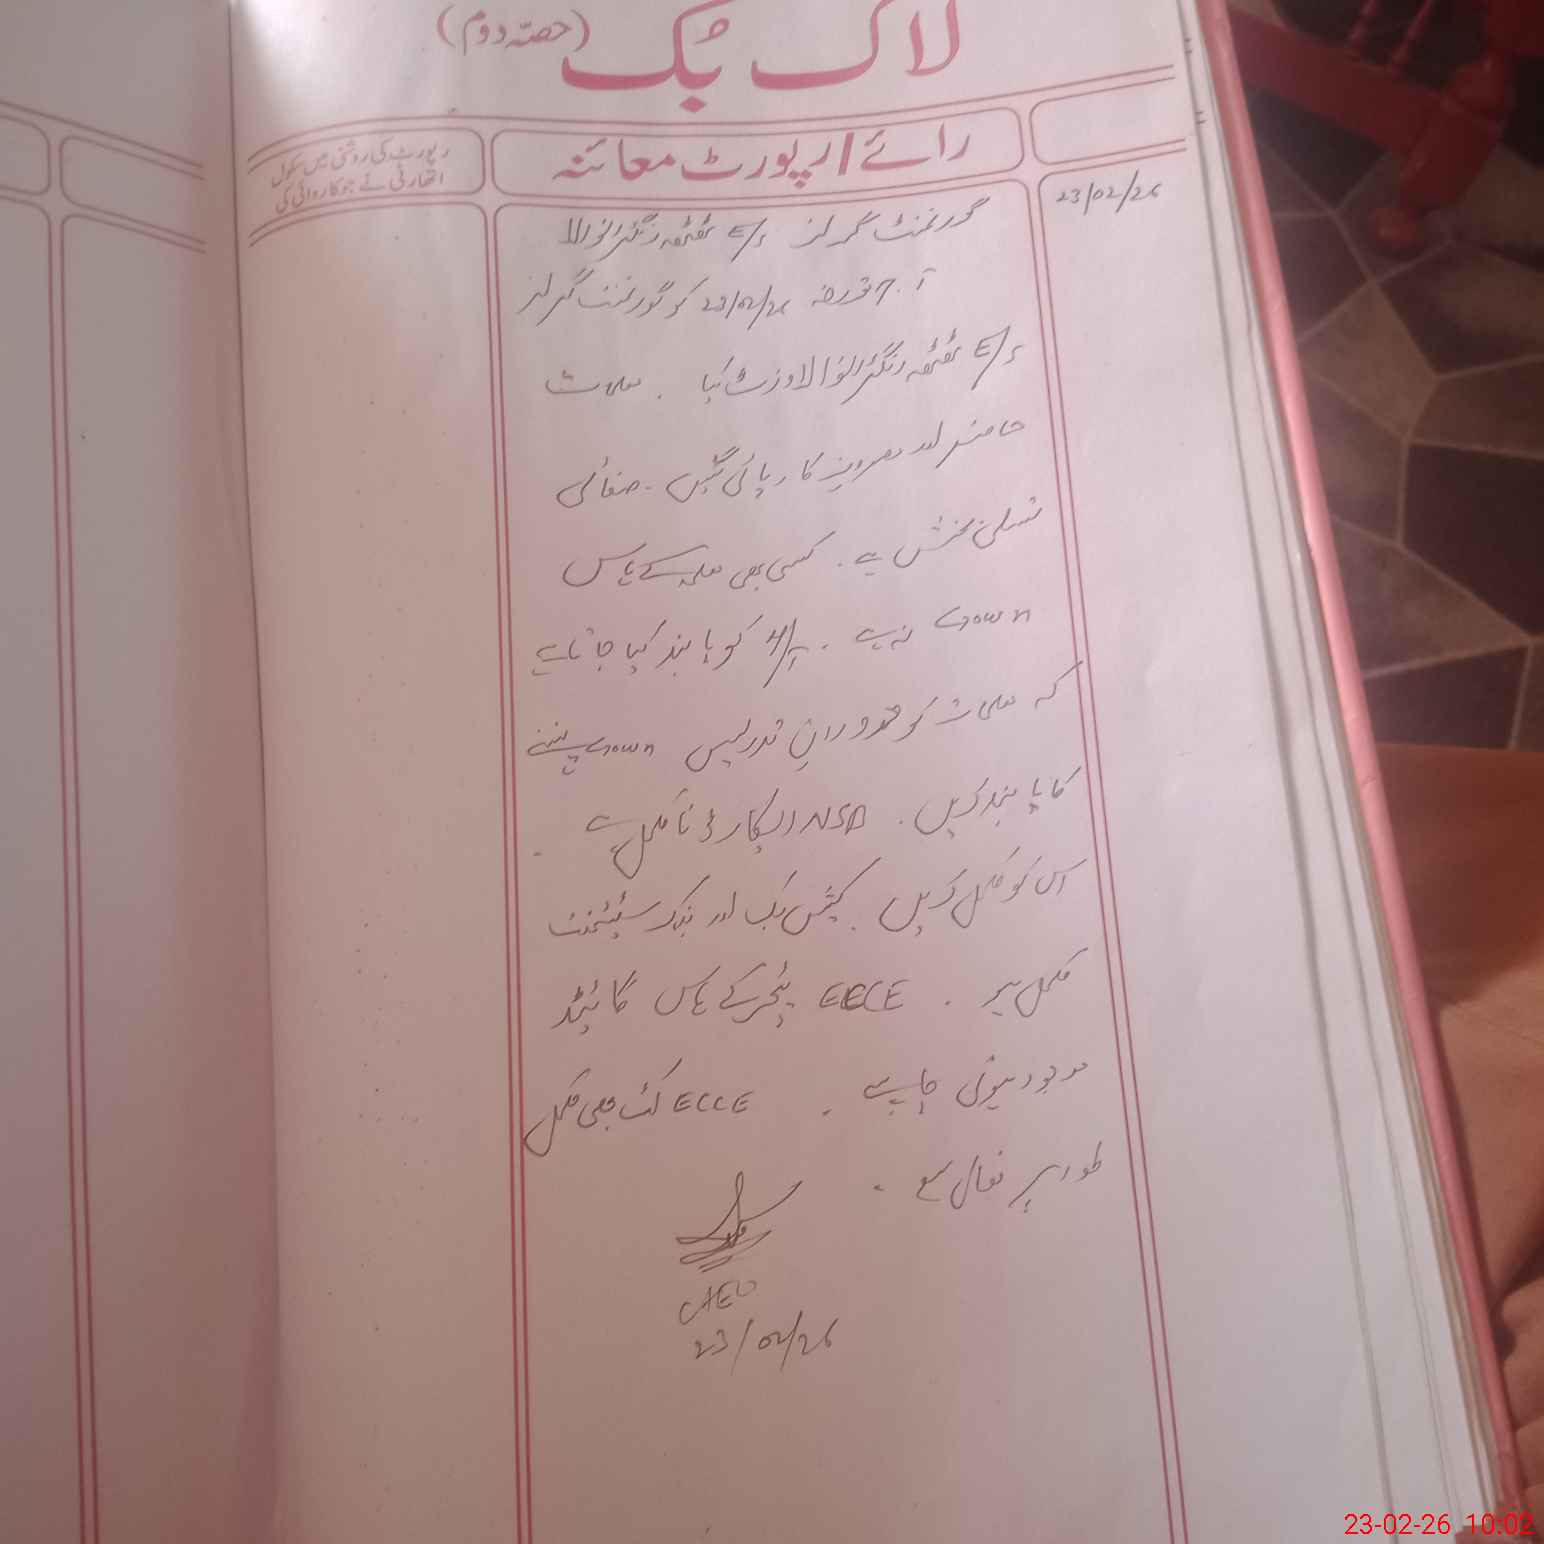 لاگ بُک (حصّہ دوم)
رائے / رپورٹ معائنہ
رپورٹ کی روشنی میں سکول
اتھارٹی نے جو کاروائی کی
23/02/26
گورنمنٹ گرلز E/S ٹھٹھہ رنگڑانوالا
آج مورخہ 23/02/26 کو گورنمنٹ گرلز
E/S ٹھٹھہ رنگڑانوالا وزٹ کیا ۔ معلمات
حاضر اور مصروف کار پائی گئیں ۔ صفائی
تسلی بخش ہے ۔ کسی بھی معلمہ کے پاس
Gown نہ ہے ۔ H/T کو پابند کیا جاتا ہے
کہ معلمات کو دوران تدریس Gown پہننے
کا پابند کریں ۔ NSB ریکارڈ نامکمل ہے ۔
اس کو مکمل کریں ۔ کیش بک اور بنک سٹیٹمنٹ
مکمل ہو ۔ ECCE ٹیچر کے پاس گائیڈ
موجود ہونی چاہیے ۔ ECCE کٹ بھی مکمل
طور پر فعال ہو ۔
AEO
23/02/26
23-02-26 10:02